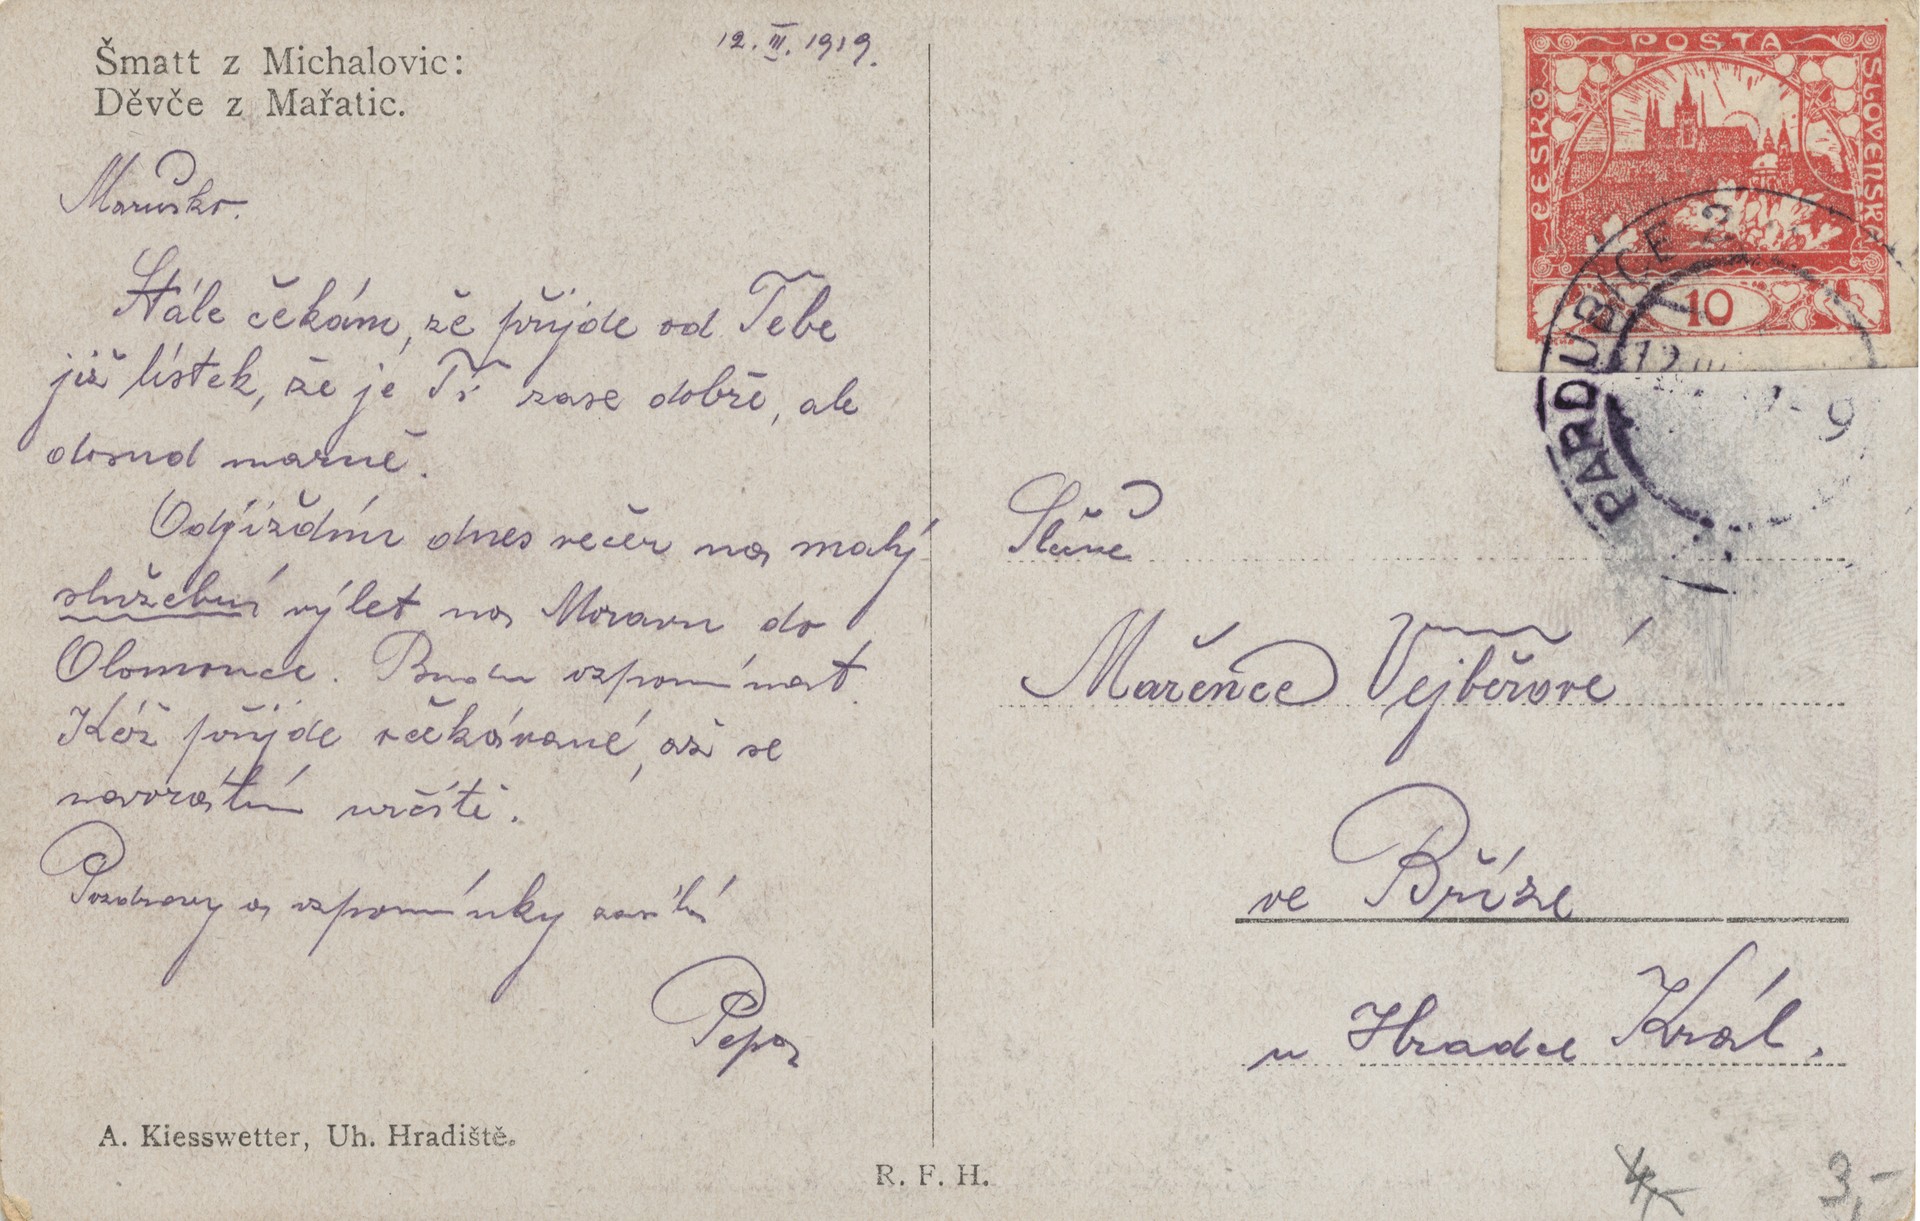 Šmatt z Michalovic:
Děvče z Mařatic.
12. III. 1919.
Maruško.
Stále čekám, že přijde od Tebe
již lístek, že je Ti zase dobře, ale
dosud marně.
Odjíždím dnes večer na malý
služební výlet na Moravu do
Olomouce. Budu vzpomínat.
Kéž přijde očekávané, až se
navrátím určitě.
Pozdravy a vzpomínky zasílá
Pepa
A. Kiesswetter, Uh. Hradiště.
R. F. H.
POSTA
ČESKO
SLOVENSKÁ
10
PARDUBICE 2
Slečně
Mařence Vejběrové
ve Bříze
u Hradce Král.
4,-
3,-